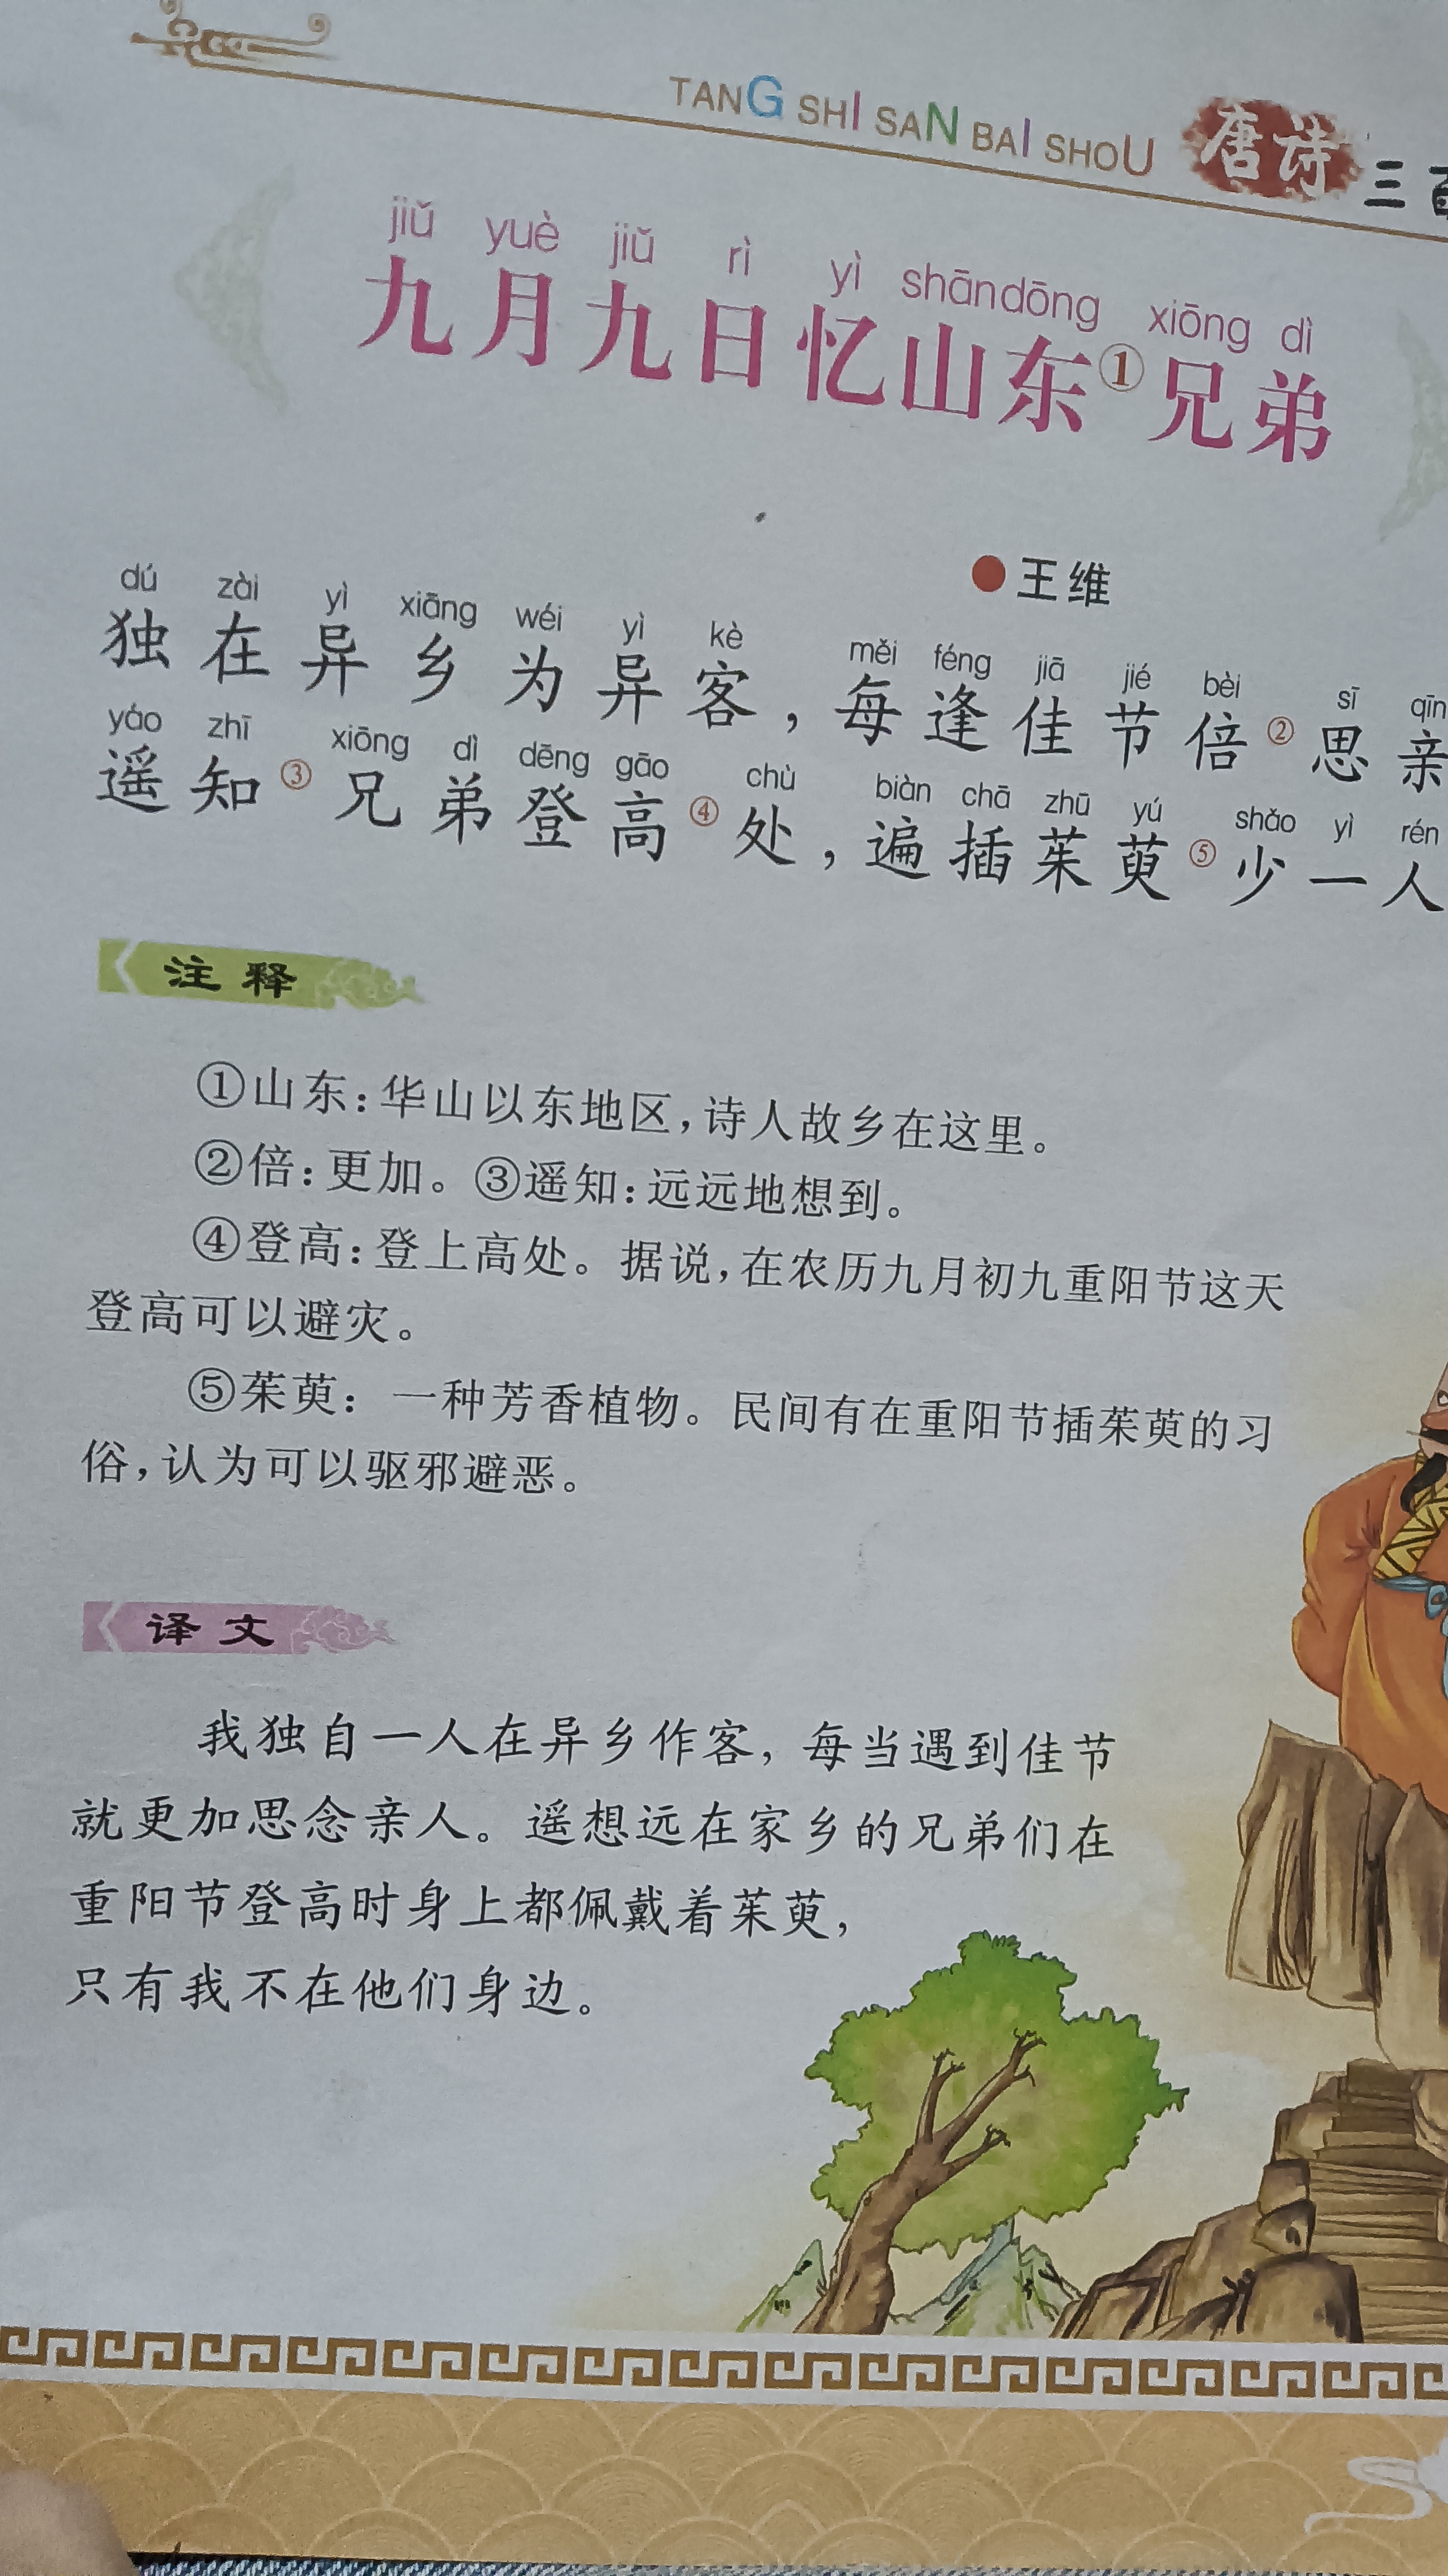 TANG SHI SAN BAI SHOU 唐诗三百
jiǔ yuè jiǔ rì yì shāndōng xiōng dì
九月九日忆山东①兄弟
●王维
dú zài yì xiāng wéi yì kè měi féng jiā jié bèi sī qīn
独在异乡为异客，每逢佳节倍②思亲
yáo zhī xiōng dì dēng gāo chù biàn chā zhū yú shǎo yì rén
遥知③兄弟登高④处，遍插茱萸⑤少一人
注释
①山东：华山以东地区，诗人故乡在这里。
②倍：更加。③遥知：远远地想到。
④登高：登上高处。据说，在农历九月初九重阳节这天
登高可以避灾。
⑤茱萸：一种芳香植物。民间有在重阳节插茱萸的习
俗，认为可以驱邪避恶。
译文
我独自一人在异乡作客，每当遇到佳节
就更加思念亲人。遥想远在家乡的兄弟们在
重阳节登高时身上都佩戴着茱萸，
只有我不在他们身边。